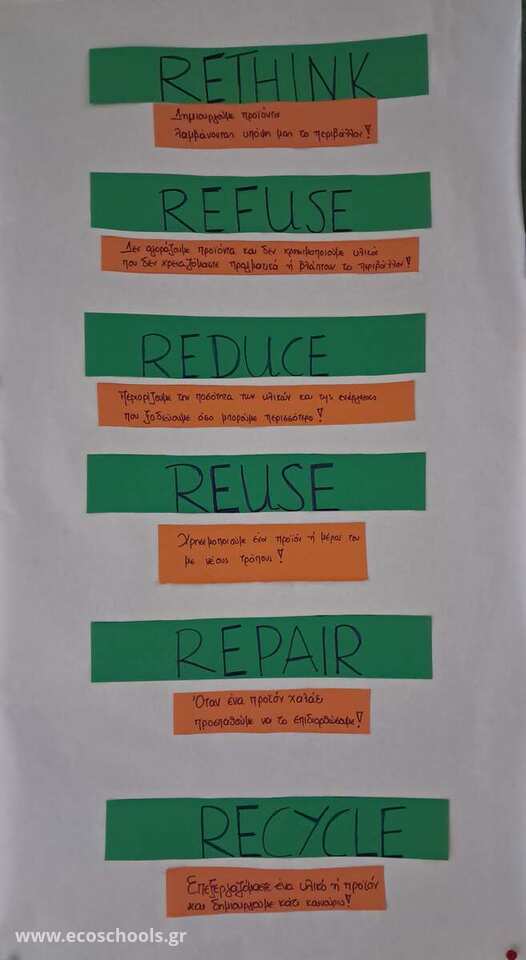 RETHINK
Δημιουργούμε προϊόντα
λαμβάνοντας υπόψη μας το περιβάλλον!
REFUSE
Δεν αγοράζουμε προϊόντα και δεν χρησιμοποιούμε υλικά
που δεν χρειαζόμαστε πραγματικά ή βλάπτουν το περιβάλλον!
REDUCE
Περιορίζουμε την ποσότητα των υλικών και της ενέργειας
που ξοδεύουμε όσο μπορούμε περισσότερο!
REUSE
Χρησιμοποιούμε ένα προϊόν ή μέρος του
με νέους τρόπους!
REPAIR
Όταν ένα προϊόν χαλάει
προσπαθούμε να το επιδιορθώσουμε!
RECYCLE
Επεξεργαζόμαστε ένα υλικό ή προϊόν
και δημιουργούμε κάτι καινούριο!
www.ecoschools.gr